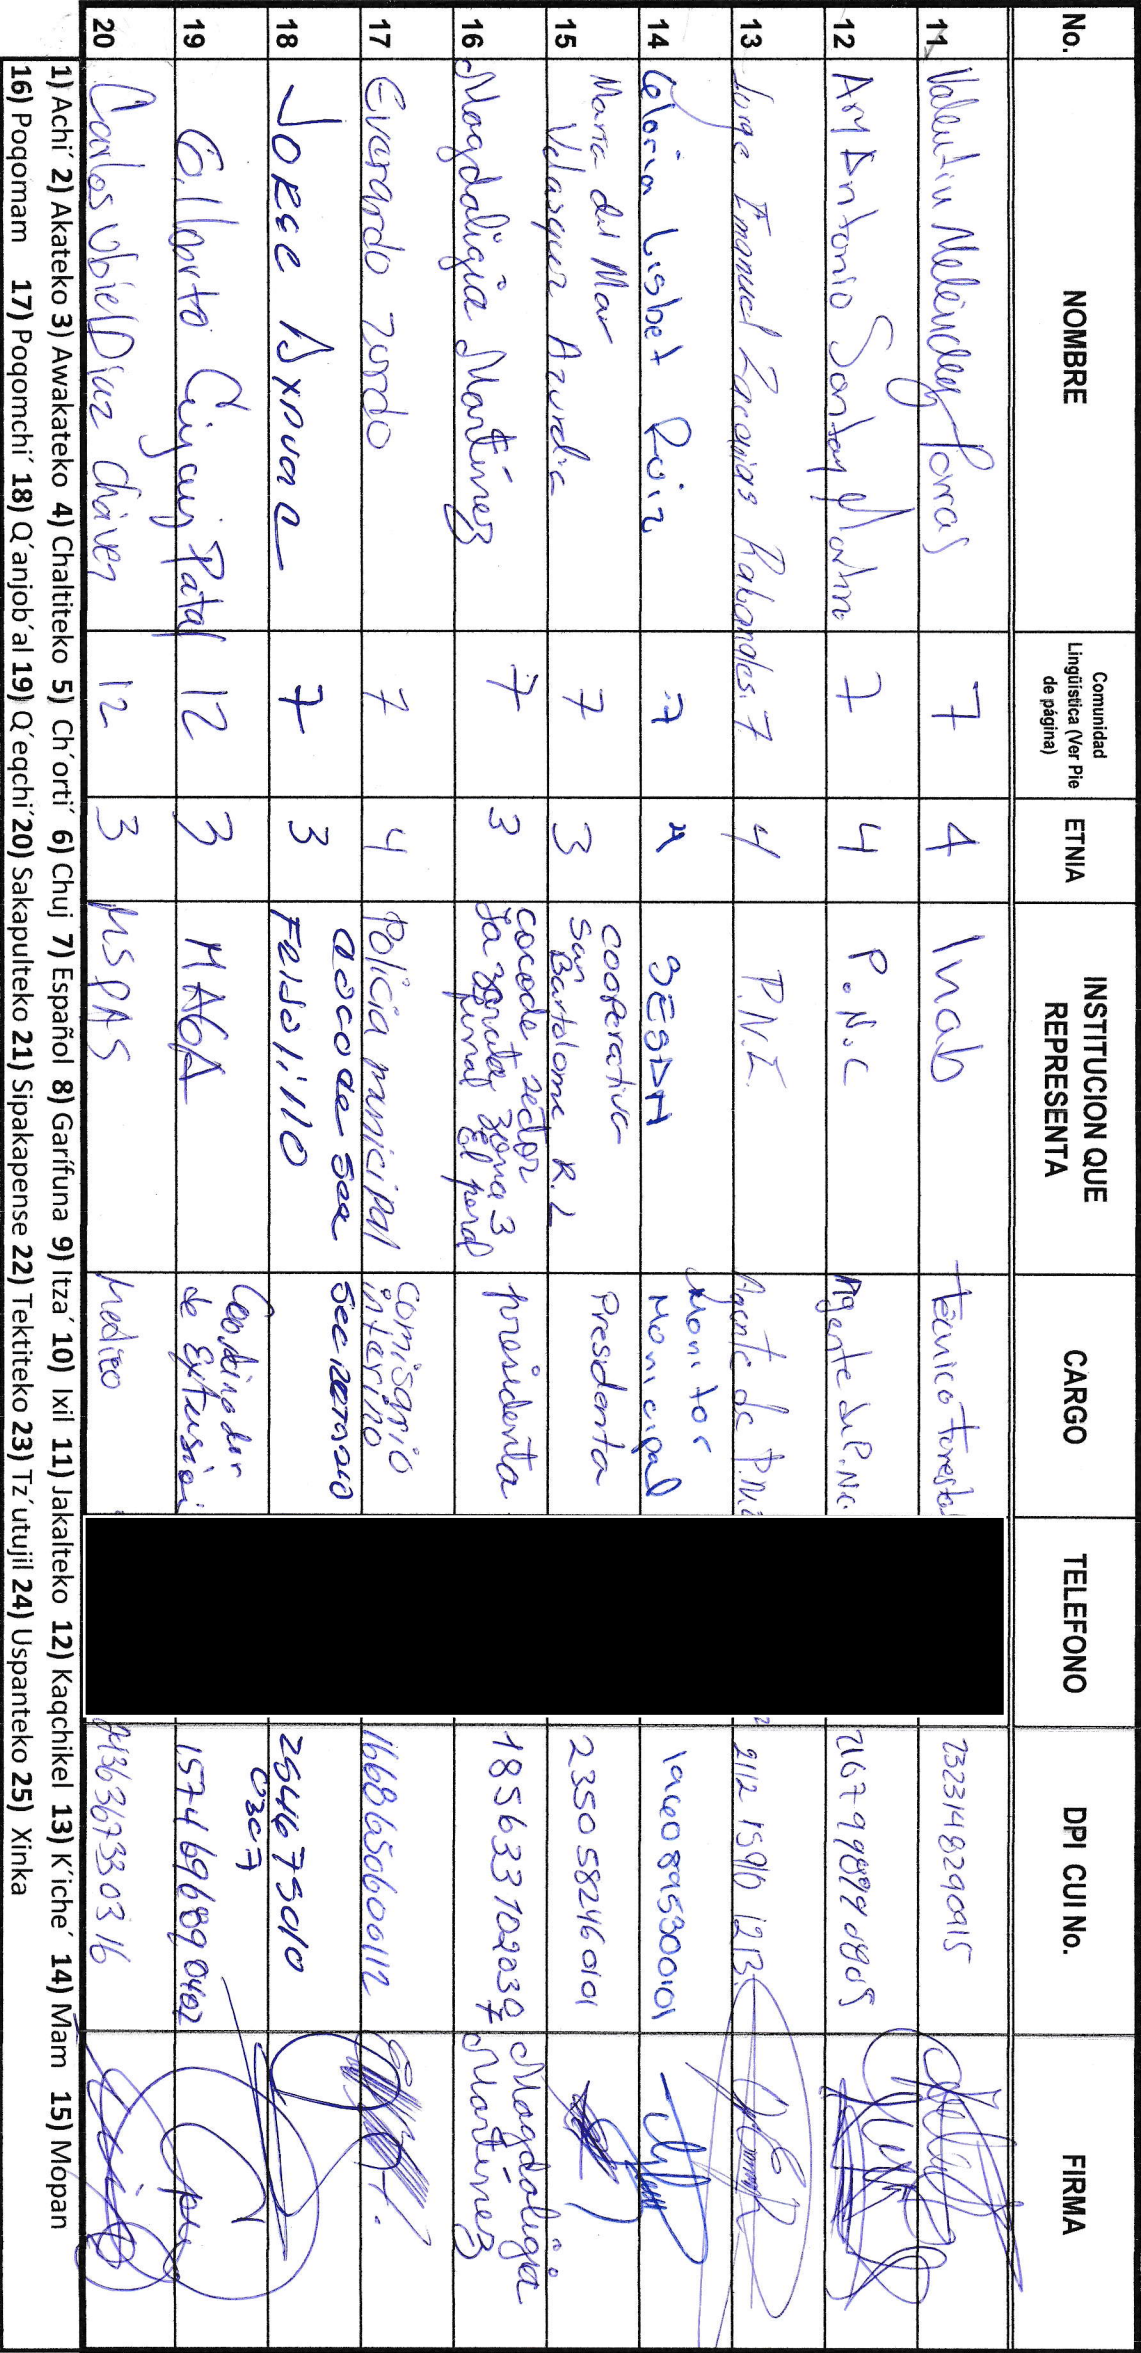 No. NOMBRE Comunidad Lingüistica (Ver Pie de página) ETNIA INSTITUCION QUE REPRESENTA CARGO TELEFONO DPI CUI No. FIRMA
11 Valentin Meléndez Porras 7 4 Inab técnico Forestal 2323148290915
12 Antonio Santay Martin 7 4 P.N.C Agente de P.N.C.
13 Jorge Emanuel Zacarias Rabanales. 7 4 Agente de
14 Gloria Lisbet Ruiz 7 4 SESAN Monitor Municipal
15 Maria del Mar Velasquez Azurdia 7 3 cooperativa San Bartolome R.L Presidenta 2350582460101
16 Magdaligia Martínez 7 3 cocode sector zona 3 El peral presidenta Magdaligia Martínez
17 Everardo Zurdo 7 4 Policia municipal Comisario interino 1668650600112
18 Jorge Axpuac 7 3 cocode Secretario
19 Gilberto 12 3 MAGA Coordinador de Extensión 1574696890402
20 Carlos Ubiel Diaz Chávez 12 3 MSPAS Medico
1) Achi´ 2) Akateko 3) Awakateko 4) Chaltiteko 5) Ch´orti´ 6) Chuj 7) Español 8) Garífuna 9) Itza´ 10) Ixil 11) Jakalteko 12) Kaqchikel 13) K´iche´ 14) Mam 15) Mopan
16) Poqomam 17) Poqomchi´ 18) Q´anjob´al 19) Q´eqchi´ 20) Sakapulteko 21) Sipakapense 22) Tektiteko 23) Tz´utujil 24) Uspanteko 25) Xinka